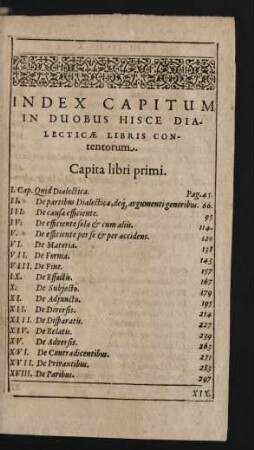 INDEX CAPITUM
IN DUOBUS HISCE DIA-
LECTICÆ LIBRIS CON-
tentorum.
Capita libri primi.
I. Cap. Quid Dialectica. Pag. 45.
II. De partibus Dialecticæ, deq; argumenti generibus. 66.
III. De causa efficiente. 95
IV. De efficiente sola & cum aliis. 114.
V. De efficiente per se & per accidens. 120
VI. De Materia. 138
VII. De Forma. 143
VIII. De Fine. 157
IX. De Effectis. 167
X. De Subjecto. 179
XI. De Adjuncto. 195
XII. De Diversis. 214
XIII. De Disparatis. 227
XIV. De Relatis. 239
XV. De Adversis. 263
XVI. De Contradicentibus. 271
XVII. De Privantibus. 283
XVIII. De Paribus. 297
XIX.